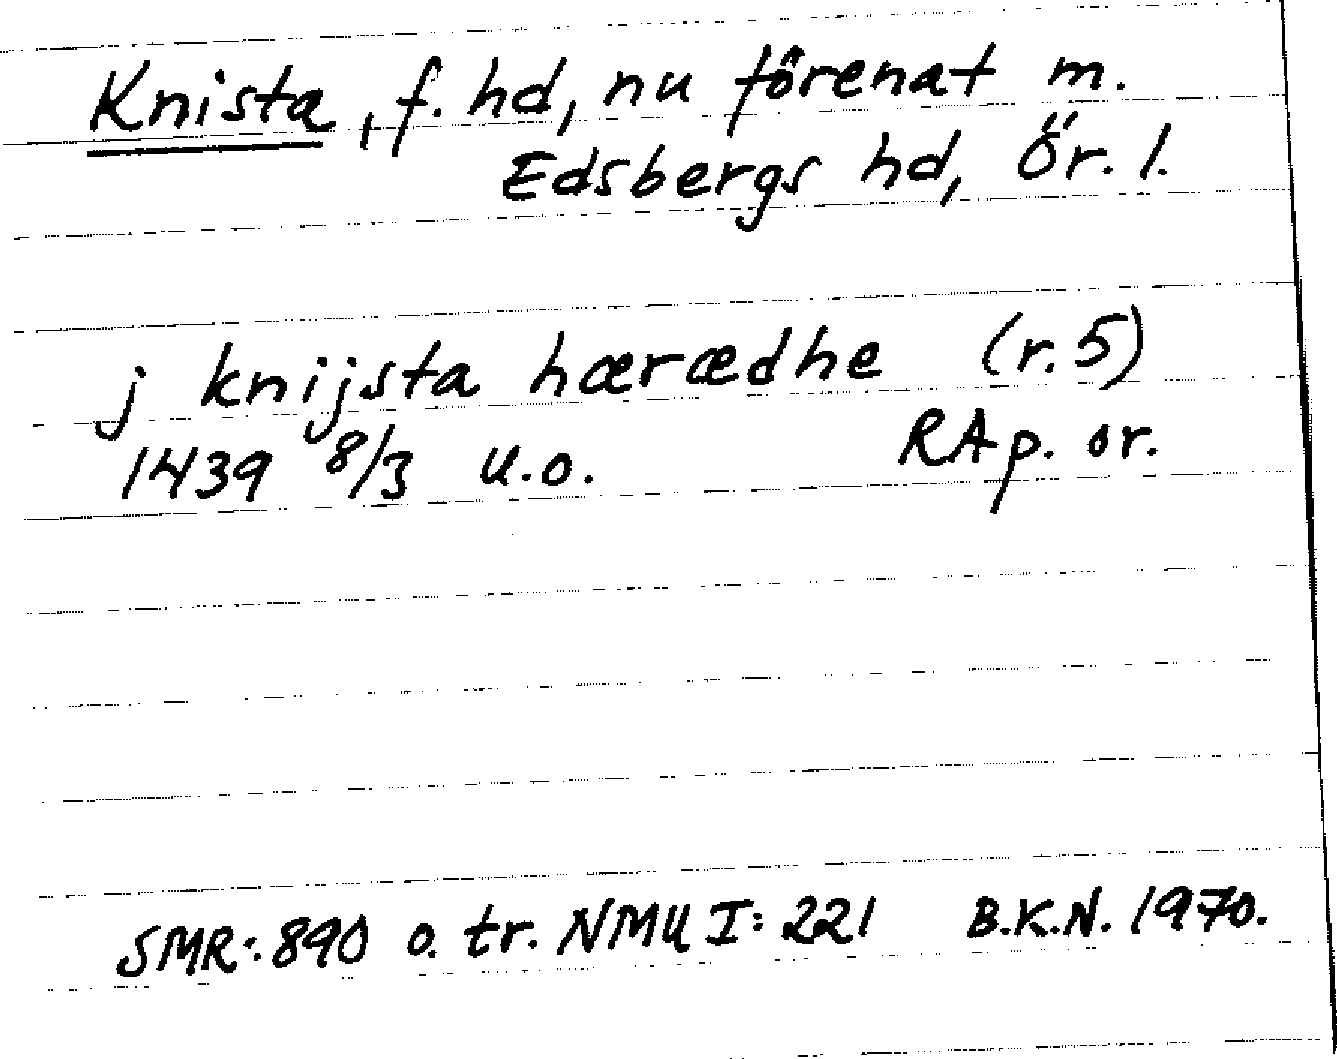 Knista, f. hd, nu förenat m.
Edsbergs hd, Ör. l.
j knijsta hærædhe (r. 5)
1439 8/3 u.o. RAp. or.
SMR: 890 o. tr. NMU I: 221 B.K.N. 1970.